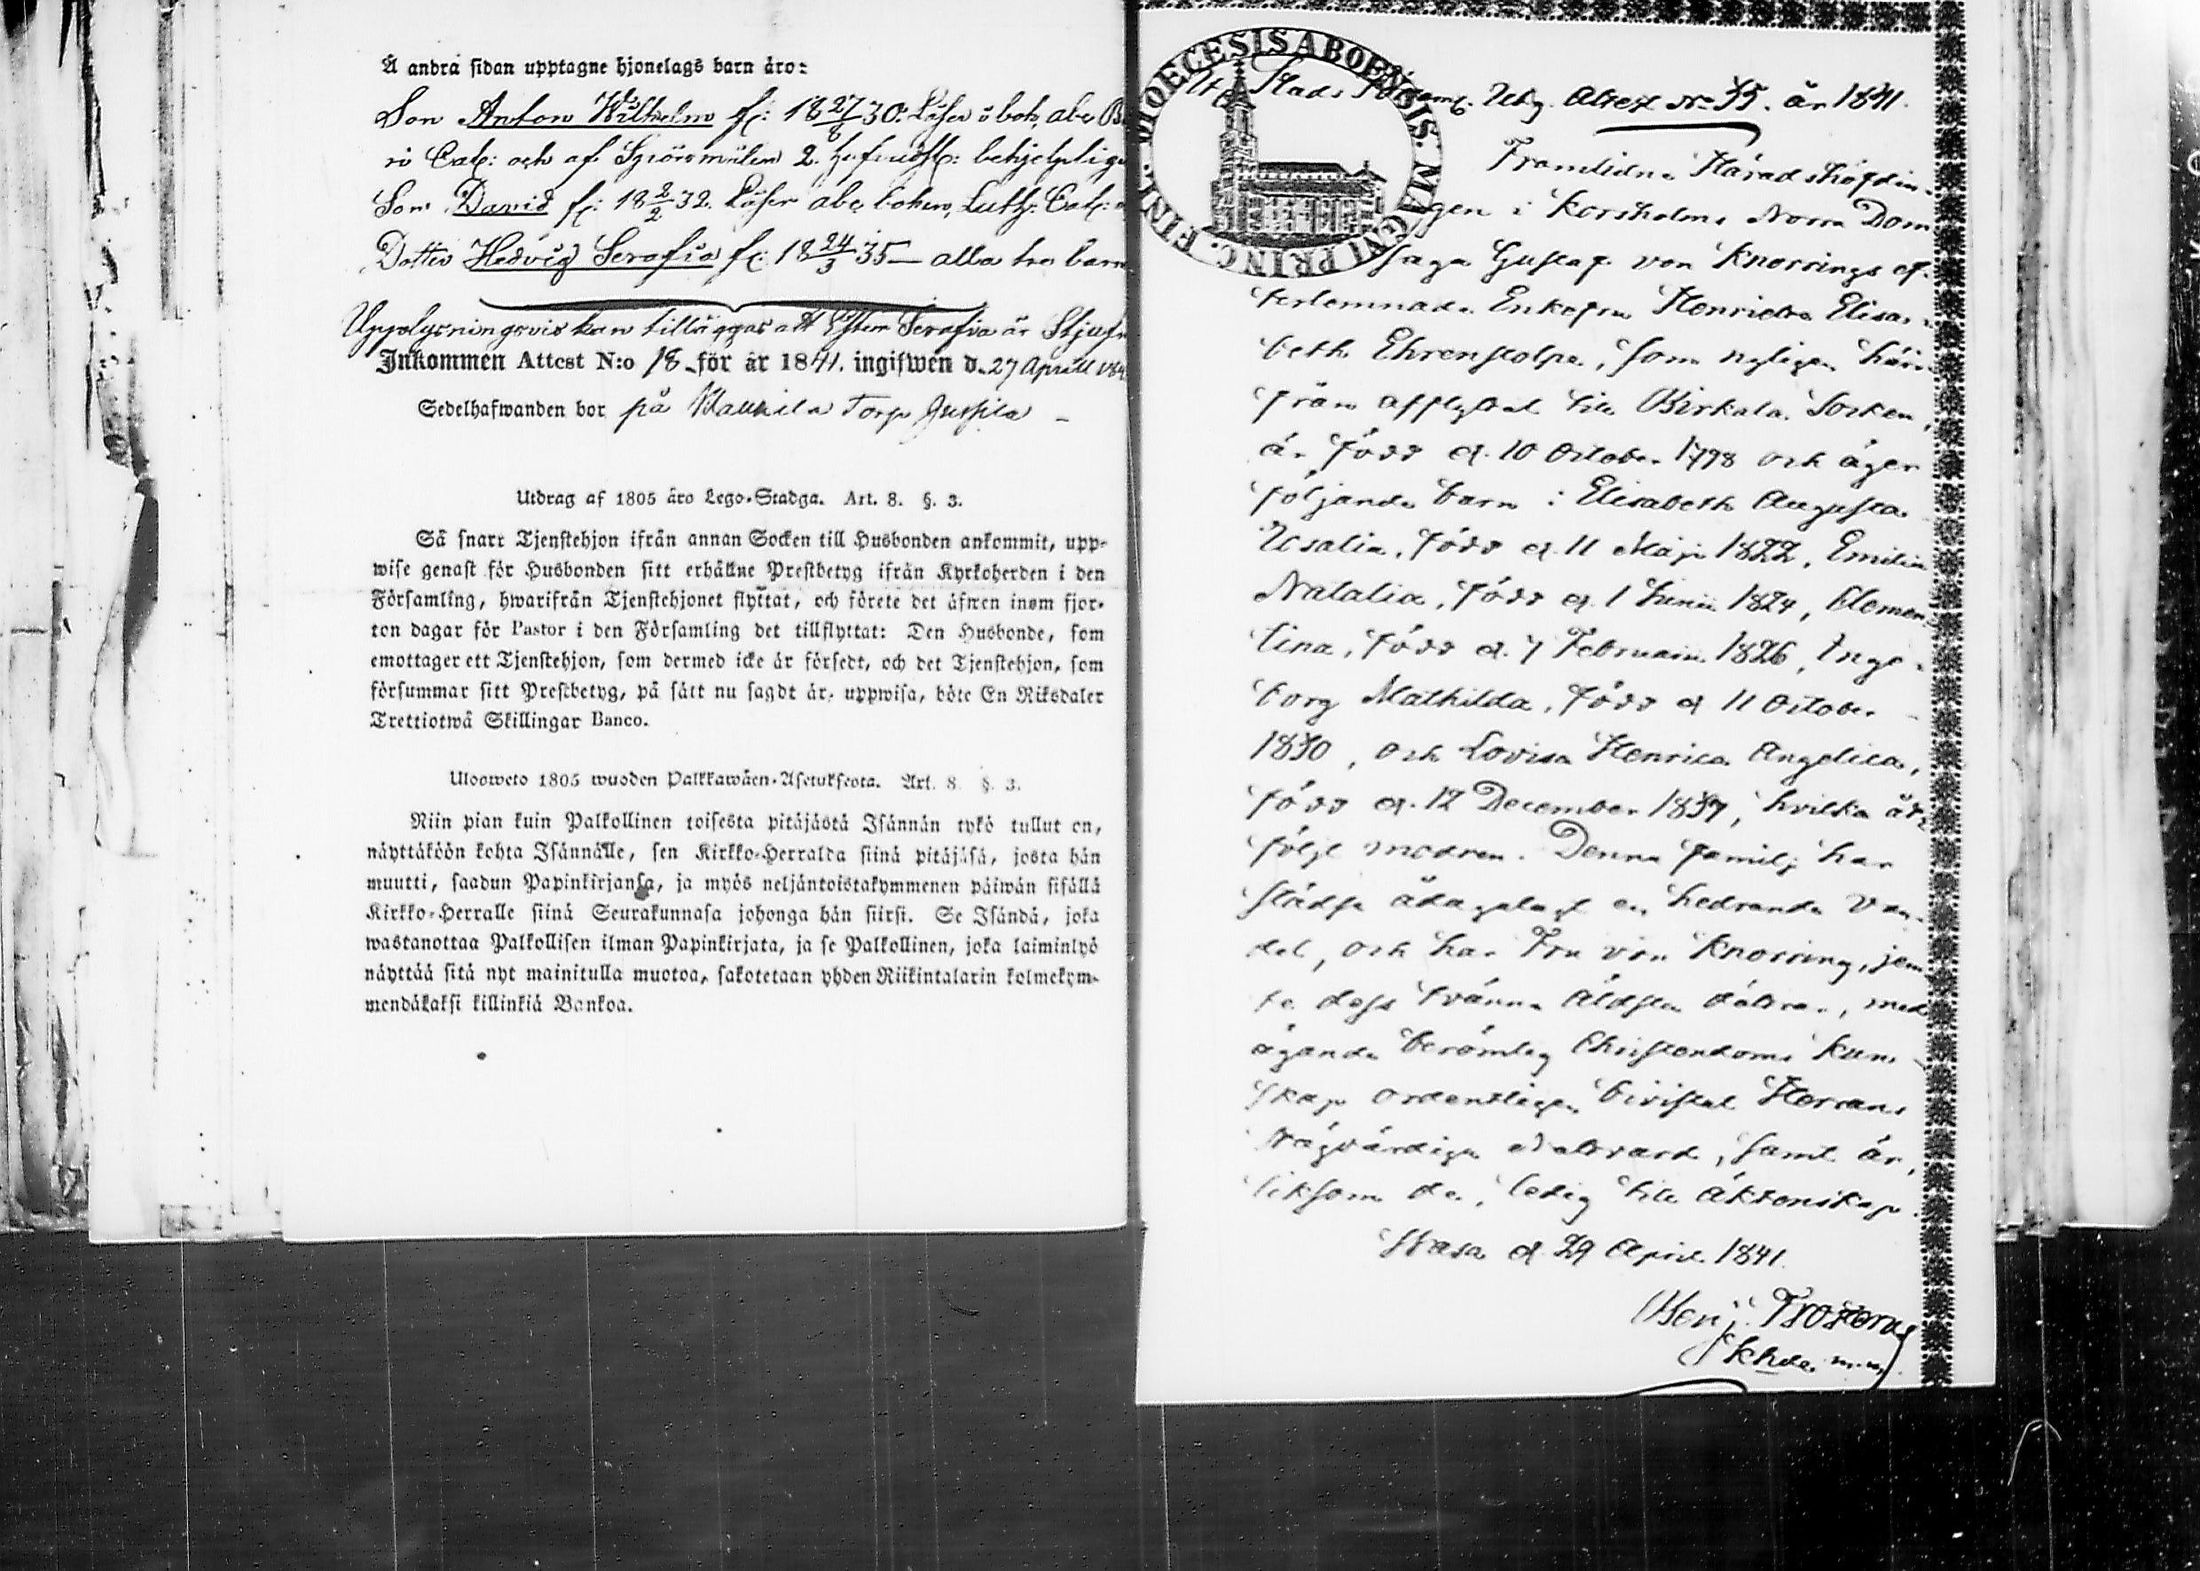 Å andra sidan upptagne hjonelags barn äro:
Son Anton Wilhelm f: 18 27/6 30. Läser i bok, abc
ri Cat: och af Spörsmålen 2. behjelplig
Son David f: 18 2/2 32. Läser abc boken, Luth: Cat:
Dotter Hedvig Serafia f: 18 24/3 35 — alla tre barn
Upplysningsvis kan tilläggas att Serafia är
Inkommen Attest N:o 18 för år 1841. ingifwen d. 27 April 184
Sedelhafwanden bor på Torp Jussila –
Utdrag af 1805 äro Lego-Stadga. Art. 8. §. 3.
Så snart Tjenstehjon ifrån annan Socken till Husbonden ankommit, upp-
wise genast för Husbonden sitt erhållne Prestbetyg ifrån Kyrkoherden i den
Församling, hwarifrån Tjenstehjonet flyttat, och förete det äfwen inom fjor-
ton dagar för Pastor i den Församling det tillflyttat: Den Husbonde, som
emottager ett Tjenstehjon, som dermed icke är försedt, och det Tjenstehjon, som
försummar sitt Prestbetyg, på sätt nu sagdt är, uppwisa, böte En Riksdaler
Trettiotwå Skillingar Banco.
Ulosweto 1805 wuoden Palkkawäen-Asetuksesta. Art. 8 §. 3.
Niin pian kuin Palkollinen toisesta pitäjästä Isännän tykö tullut on,
näyttäköön kohta Isännälle, sen Kirkko-Herralda siinä pitäjäsä, josta hän
muutti, saadun Papinkirjansa, ja myös neljäntoistakymmenen päiwän sisällä
Kirkko-Herralle siinä Seurakunnasa johonga hän siirsi. Se Isändä, joka
wastanottaa Palkollisen ilman Papinkirjata, ja se Palkollinen, joka laiminlyö
näyttää sitä nyt mainitulla muotoa, sakotetaan yhden Riikintalarin kolmekym-
mendäkaksi killinkiä Bankoa.
DIOECESIS ABOENSIS. MAGNI PRINC. FINL.
Stads Församl. Utg. Attest No 35. år 1841.
Framlidne Häradshöfdin-
gen i Korsholms Norra Dom
saga Gustaf von Knorrings ef-
terlemnade Enkefru Henrietta Elisa-
beth Ehrenstolpe, som nyligen här-
ifrån afflyttat till Birkala Socken,
är född d. 10 October 1798 och äger
följande barn: Elisabeth Augusta
Rosalia, född d. 11 Maji 1822, Emilia
Natalia, född d. 1 Junii 1824, Clemen-
tina, född d. 7 Februarii 1826, Inge-
borg Mathilda, född d 11 October
1830, och Lovisa Henrica Angelica,
född d. 12 December 1837, hvilka åt-
följt modren. Denna familj har
städse ådagalagt en hedrande van-
del, och har Fru von Knorring, jem-
te dess tvänne äldsta döttrar, med
ägande berömlig Christendoms kun-
skap ordentligen bivistat Herrans
Högvärdiga Nattvard, samt är,
liksom de, ledig till äktenskap.
Wasa d. 29 April 1841.
Benj. Frosterus
Khde. m.m.